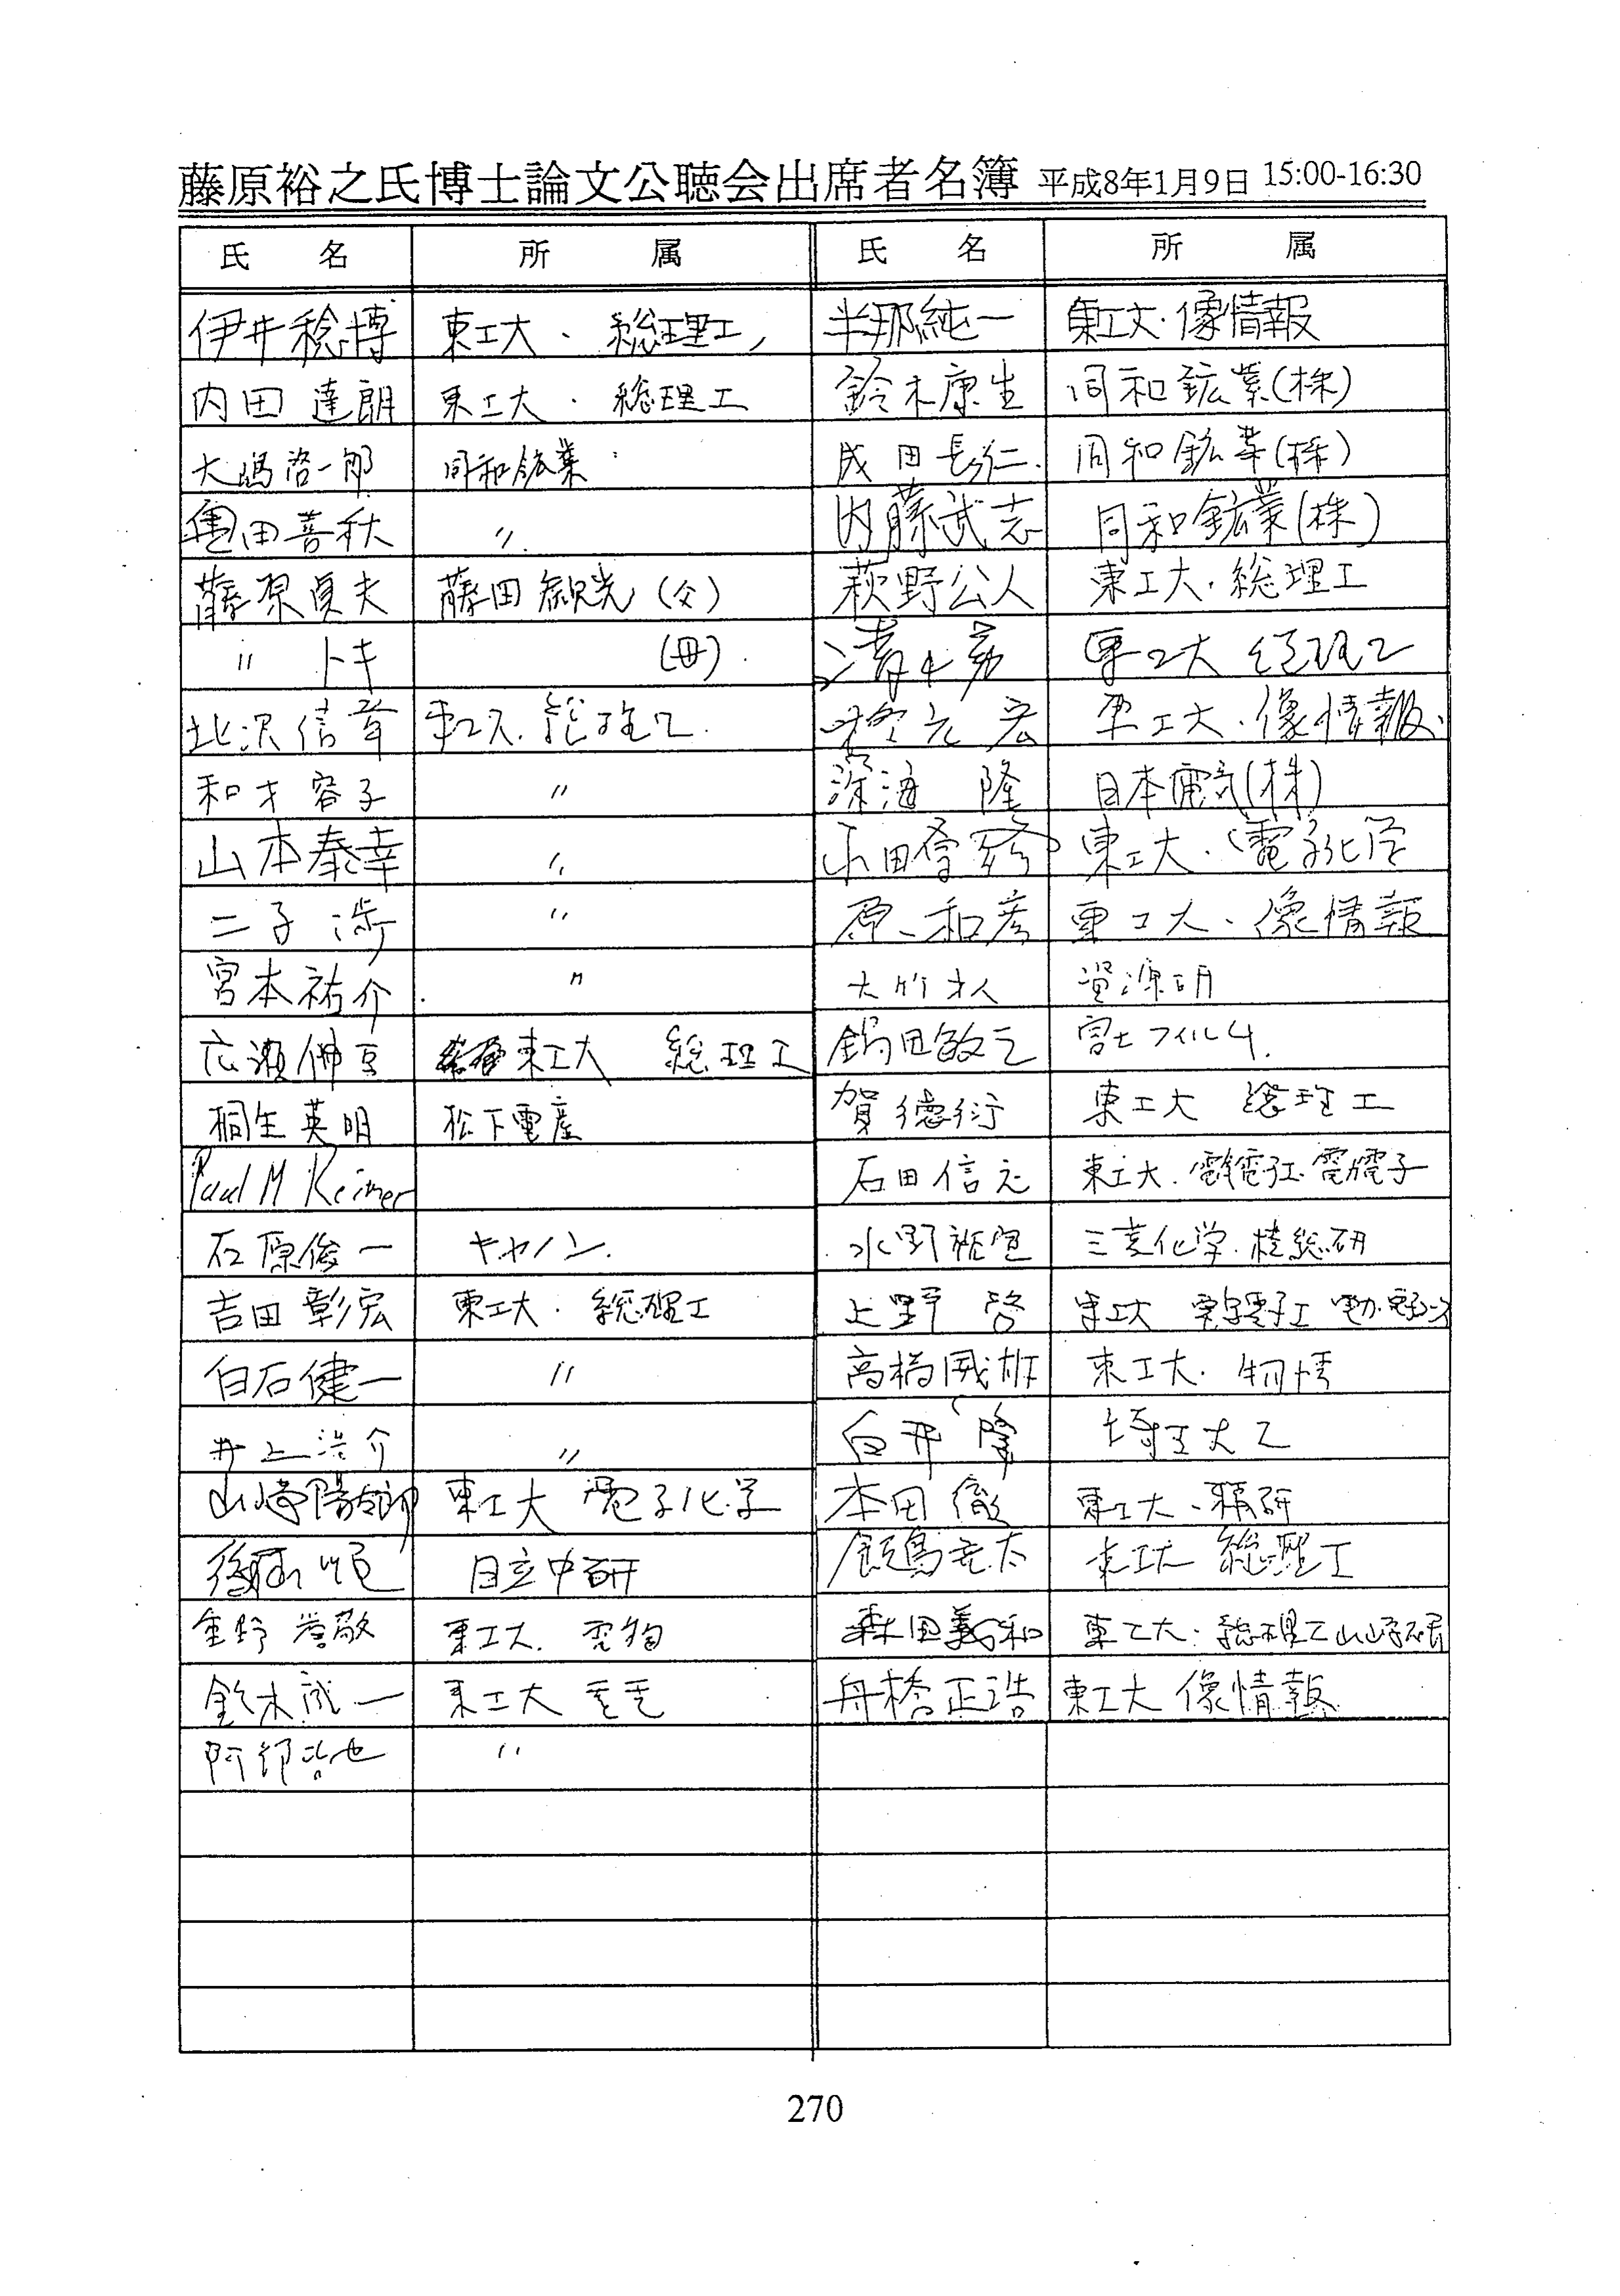 藤原裕之氏博士論文公聴会出席者名簿 平成8年1月9日 15:00-16:30
氏 名 所 属 氏 名 所 属
伊井稔博 東工大・総理工 半那純一 東工大・像情報
内田達朗 東工大・総理工 鈴木康生 同和鉱業(株)
大嶋啓一郎 同和鉱業 成田長仁 同和鉱業(株)
亀田喜秋 〃 内藤武志 同和鉱業(株)
藤原貞夫 藤田観光(父) 荻野公人 東工大・総理工
〃 トキ (母) 清水 東工大 総理工
北沢信章 東工大・総理工 宏 東工大・像情報
和才容子 〃 深海 隆 日本電気(株)
山本泰幸 〃 山田 東工大・電子化学
二子渉 〃 原 和彦 東工大・像情報
宮本祐介 〃 大竹才人 資源研
広瀬伸吾 東工大 総理工 鍋田敏之 富士フイルム
桐生英明 松下電産 賀德衍 東工大 総理工
Paul M Reimer 石田信之 東工大・
石原俊一 キヤノン 水野 三菱化学・総研
吉田彰宏 東工大・総理工 上野 啓 東工大
白石健一 〃 高橋 東工大・物情
井上浩介 〃 白井 隆 埼玉大工
山崎陽太郎 東工大 電子化学 本田徹 東工大・精研
後藤 順 日立中研 飯島亮太 東工大 総理工
重野 誉敬 東工大 電物 森田義和 東工大・総理工山崎研
鈴木誠一 東工大 舟橋正浩 東工大 像情報
阿部浩也 〃
270